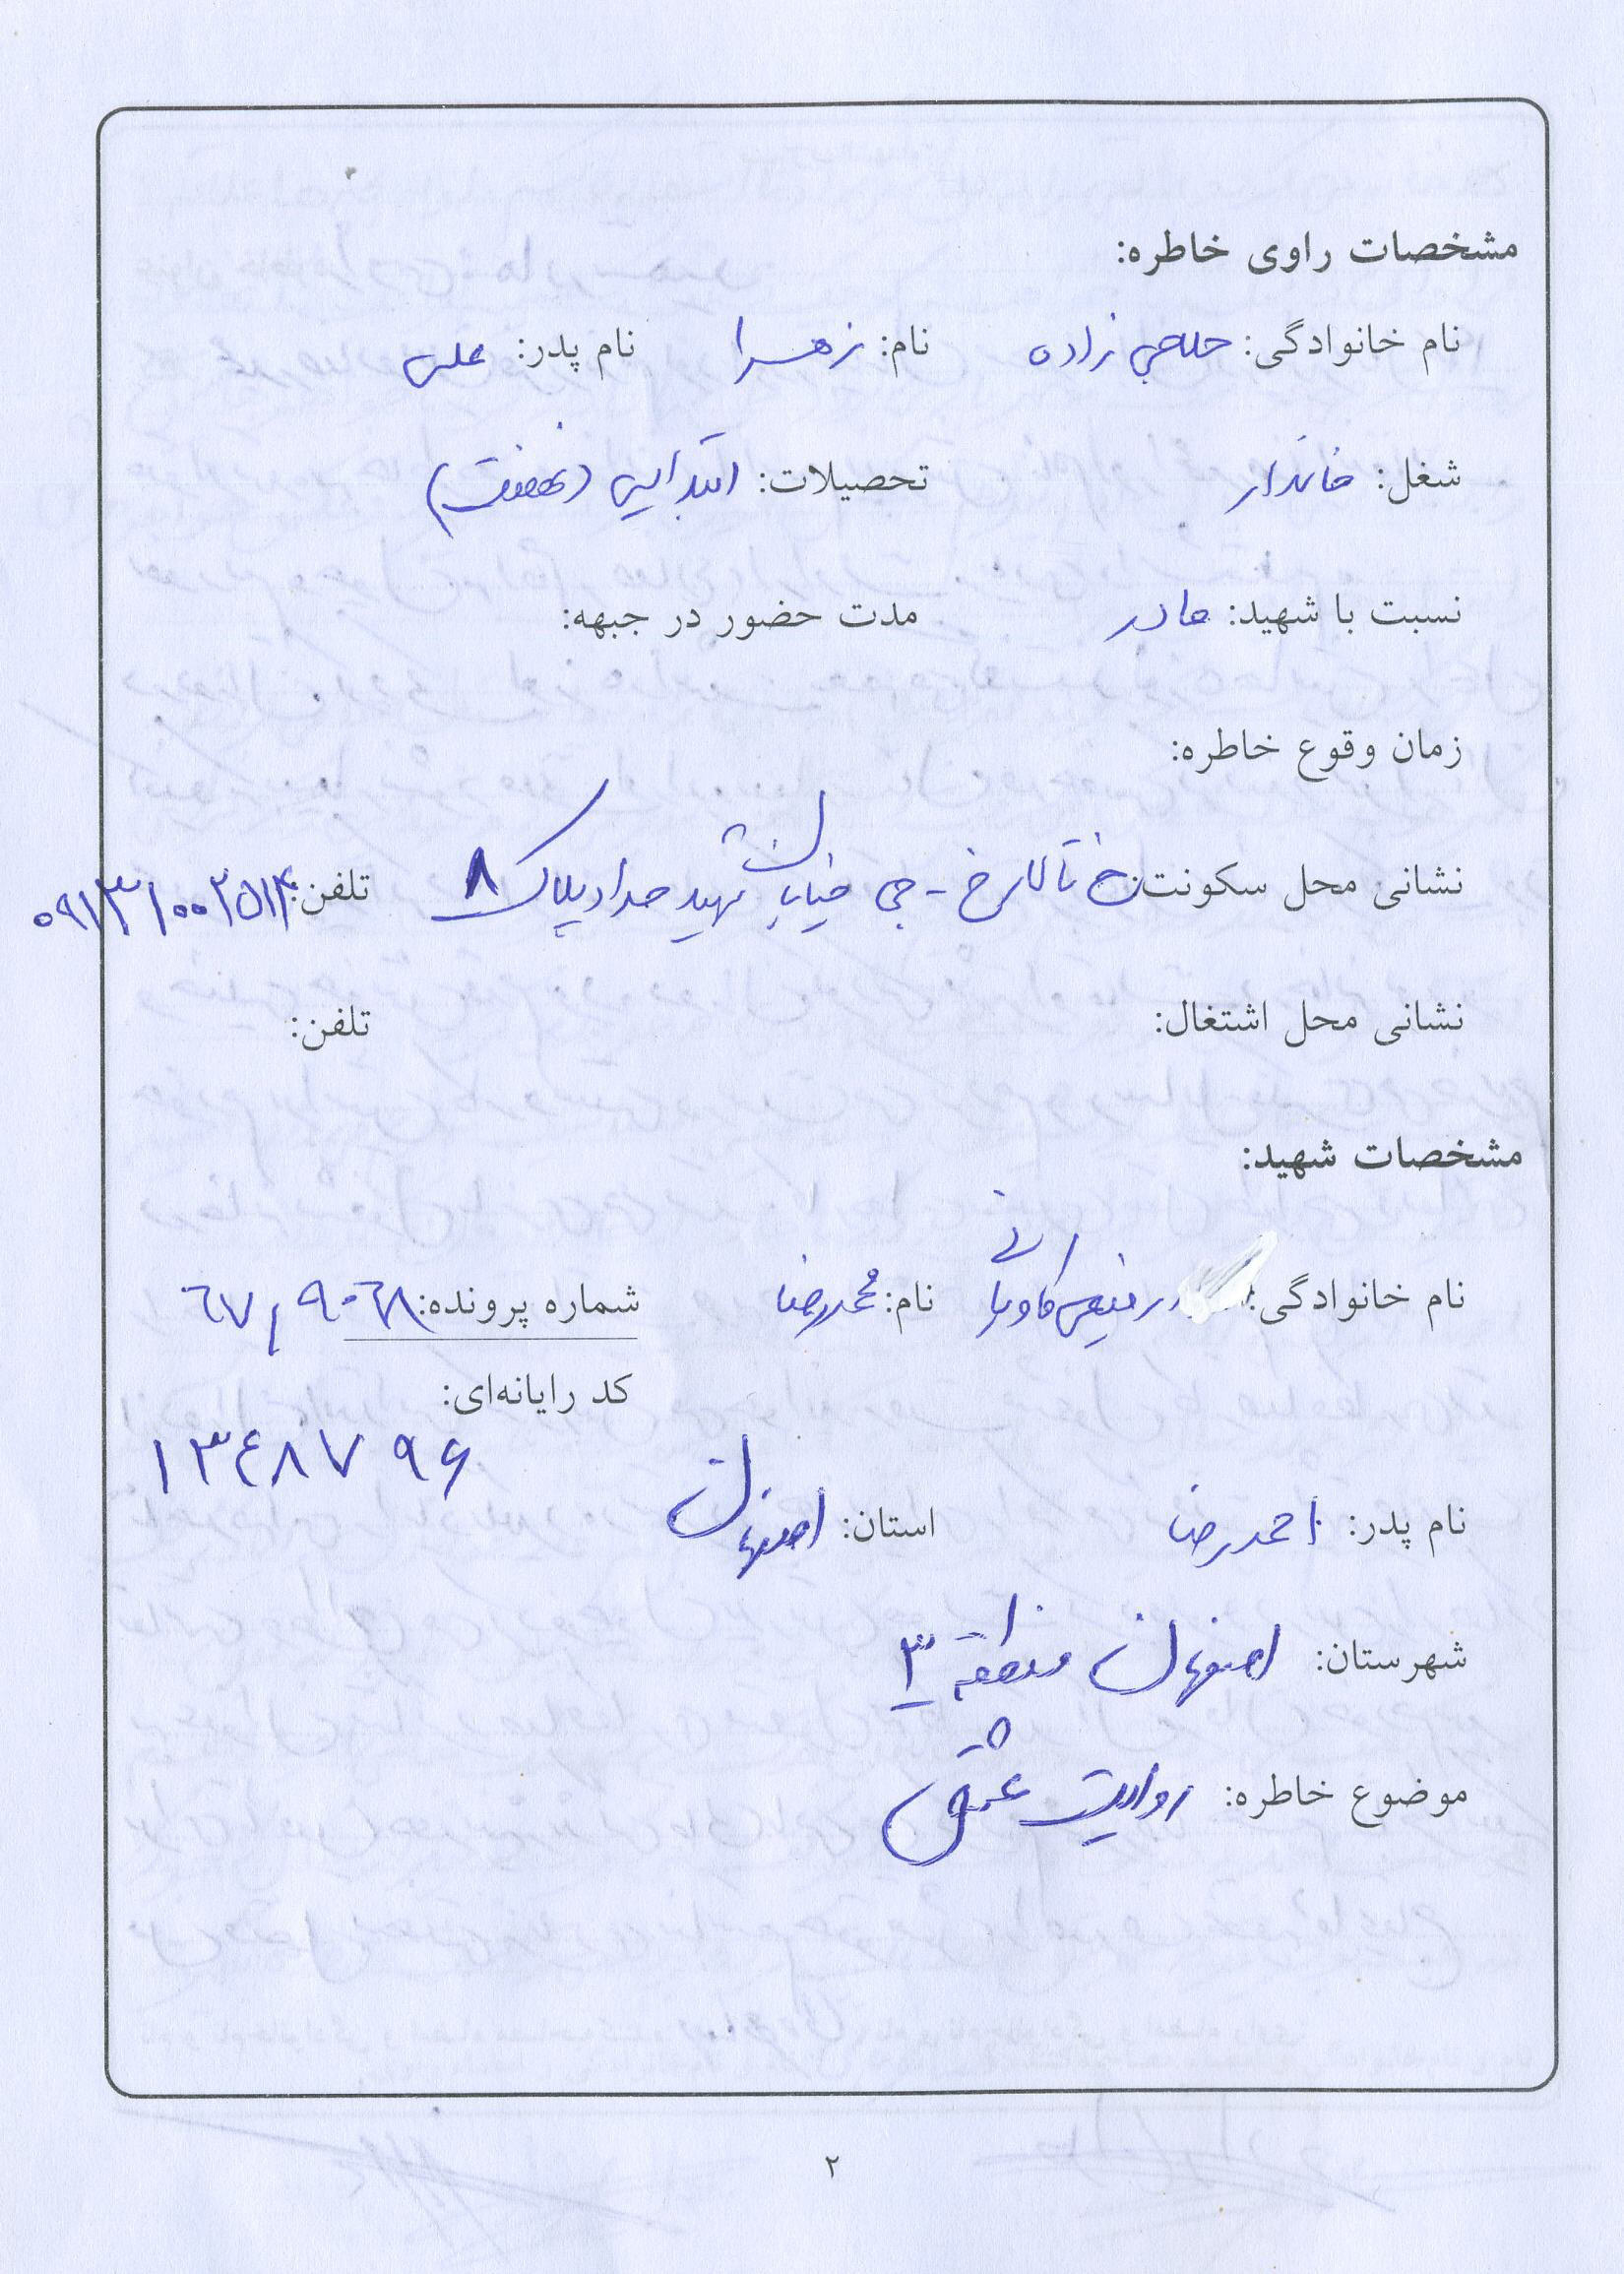 مشخصات راوی خاطره:
نام خانوادگی: حلاجی زاده نام: زهرا نام پدر: علی
شغل: خانه‌دار تحصیلات: ابتدایی (نهضت)
نسبت با شهید: مادر مدت حضور در جبهه:
زمان وقوع خاطره:
نشانی محل سکونت: خ - جی خیابان شهید حداد پلاک ۸ تلفن: ۰۹۱۳۱۰۰۲۵۱۴
نشانی محل اشتغال: تلفن:
مشخصات شهید:
نام خانوادگی: رفیعی کاویانی نام: محمدرضا شماره پرونده: ۶۷۱۹۰۶۸
کد رایانه‌ای:
۱۳۴۸۷۹۶
نام پدر: احمدرضا استان: اصفهان
شهرستان: اصفهان منطقه ۳
موضوع خاطره: روایت عشق
۲